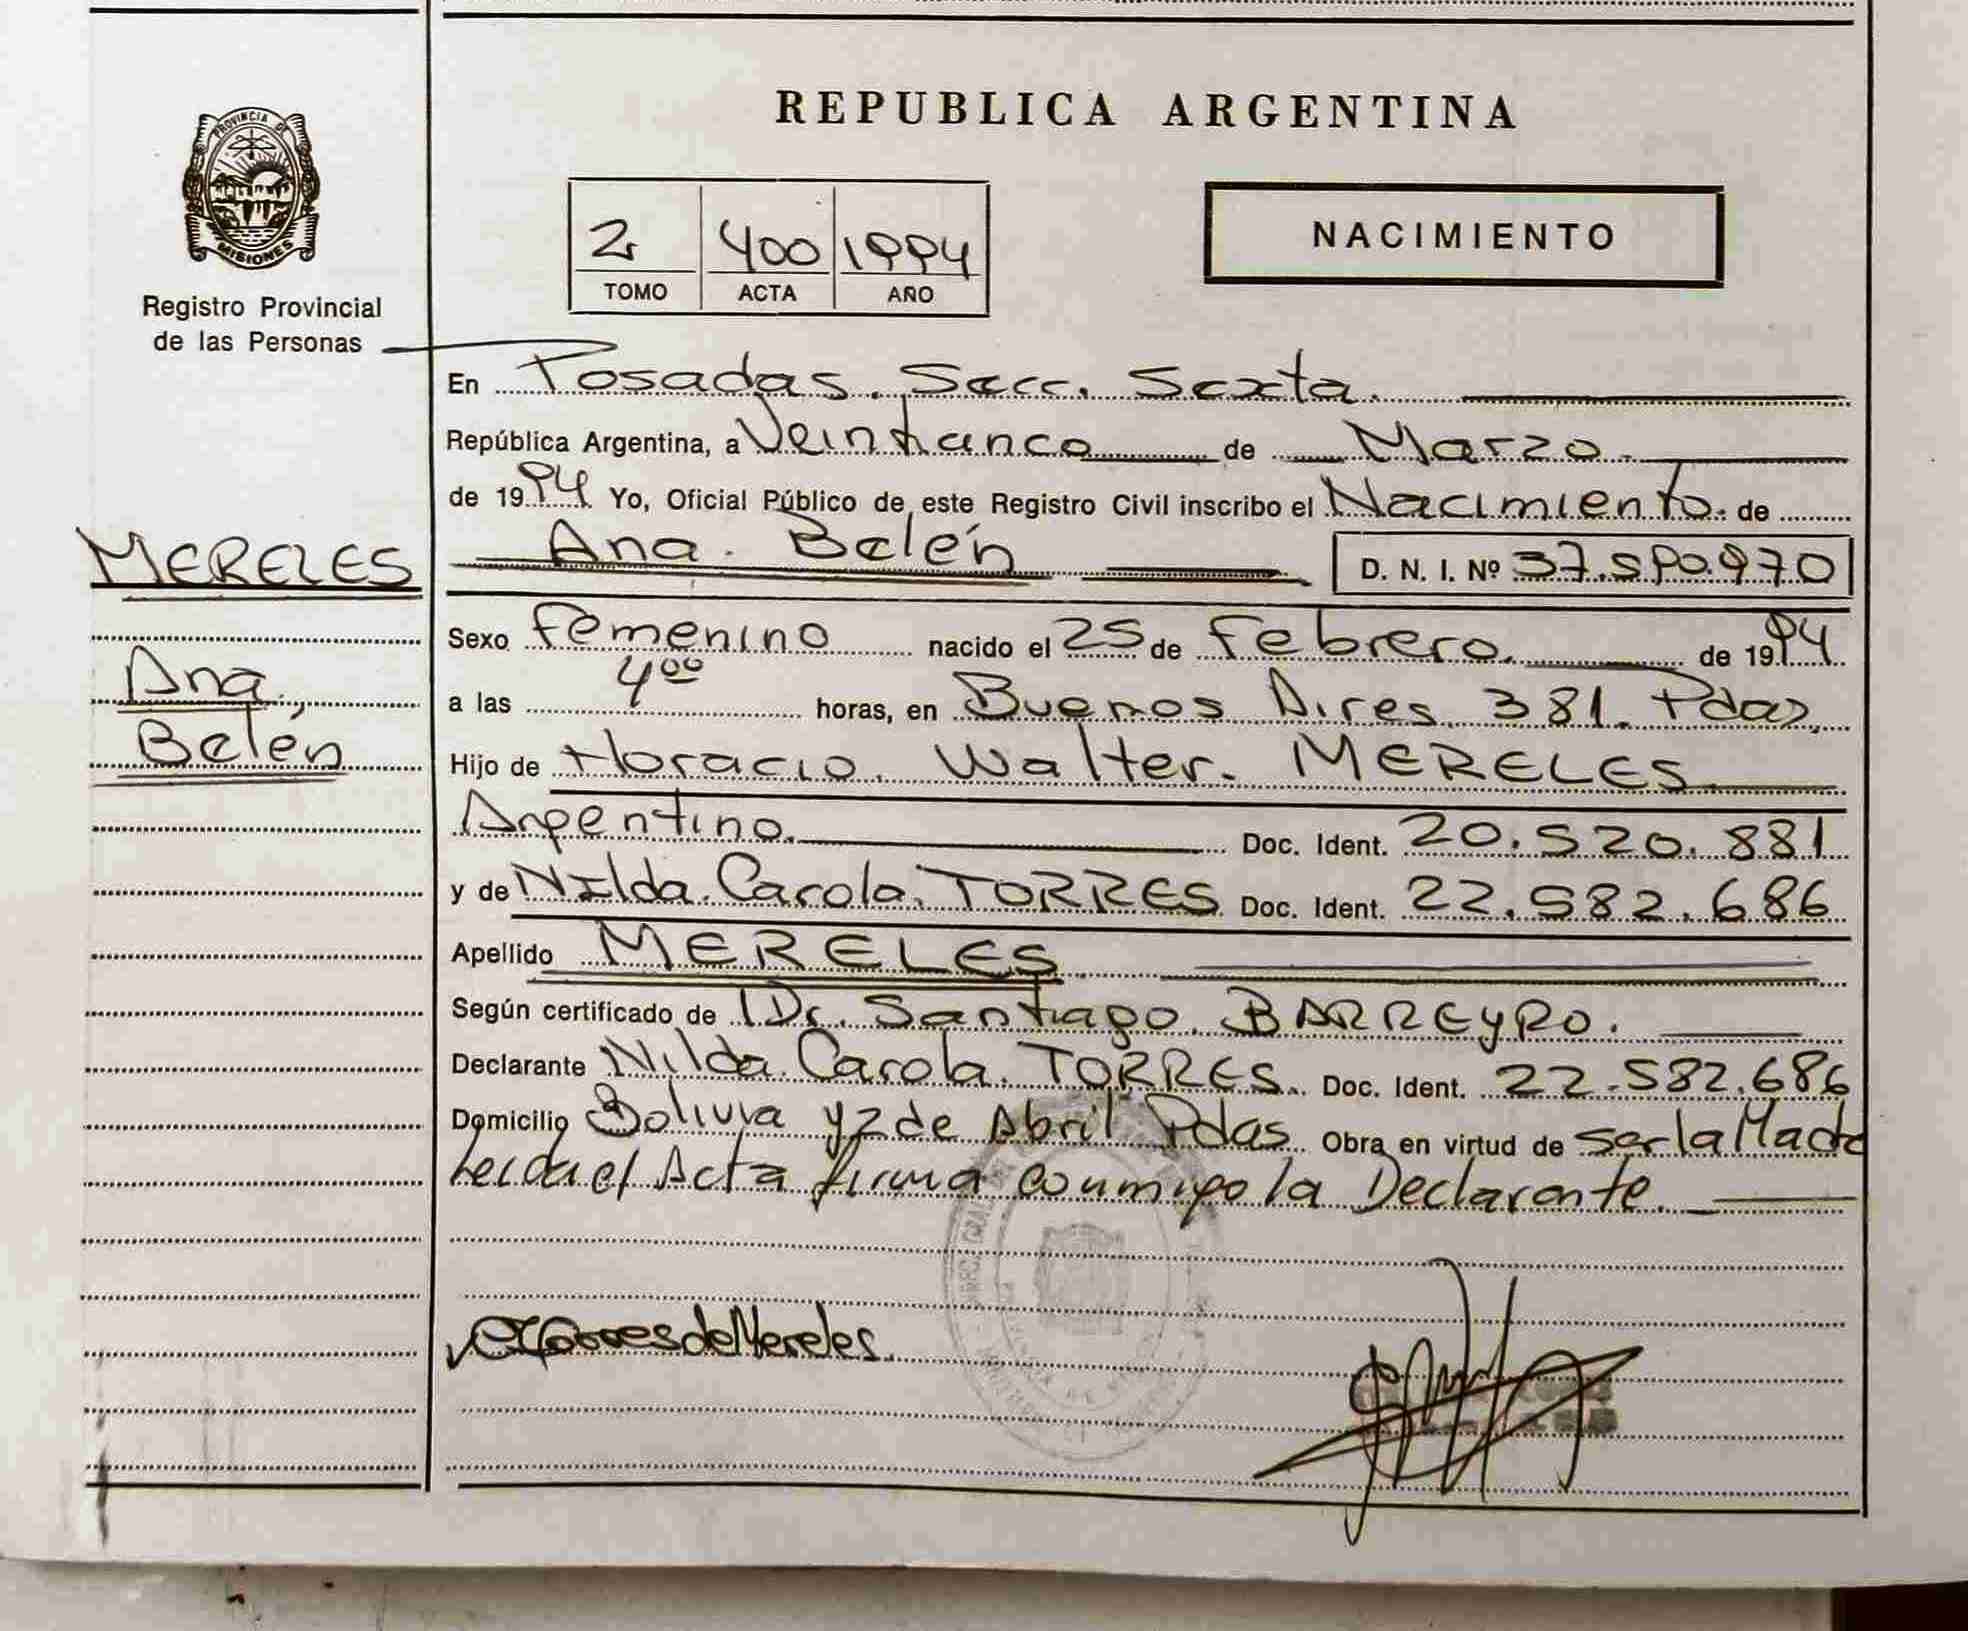 REPUBLICA ARGENTINA
PROVINCIA DE
MISIONES
Registro Provincial
de las Personas
2 400 1994
TOMO ACTA AÑO
NACIMIENTO
En Posadas. Secc. Sexta.
República Argentina, a Veinticinco de Marzo.
de 1994 Yo, Oficial Público de este Registro Civil inscribo el Nacimiento. de
Ana. Belén D. N. I. Nº 37.590.970
MERELES
Ana.
Belén
Sexo femenino nacido el 25 de Febrero. de 1994
a las 4⁰⁰ horas, en Buenos Aires 381. Pdas.
Hijo de Horacio. Walter. MERELES
Argentino. Doc. Ident. 20.520.881
y de Nilda. Carola. TORRES Doc. Ident. 22.582.686
Apellido MERELES
Según certificado de Dr. Santiago BARREYRO.
Declarante Nilda. Carola. TORRES. Doc. Ident. 22.582.686
Domicilio Bolivia y 2 de Abril Pdas. Obra en virtud de ser la Madre
Leida el Acta firma conmigo la Declarante.
Torres de Mereles